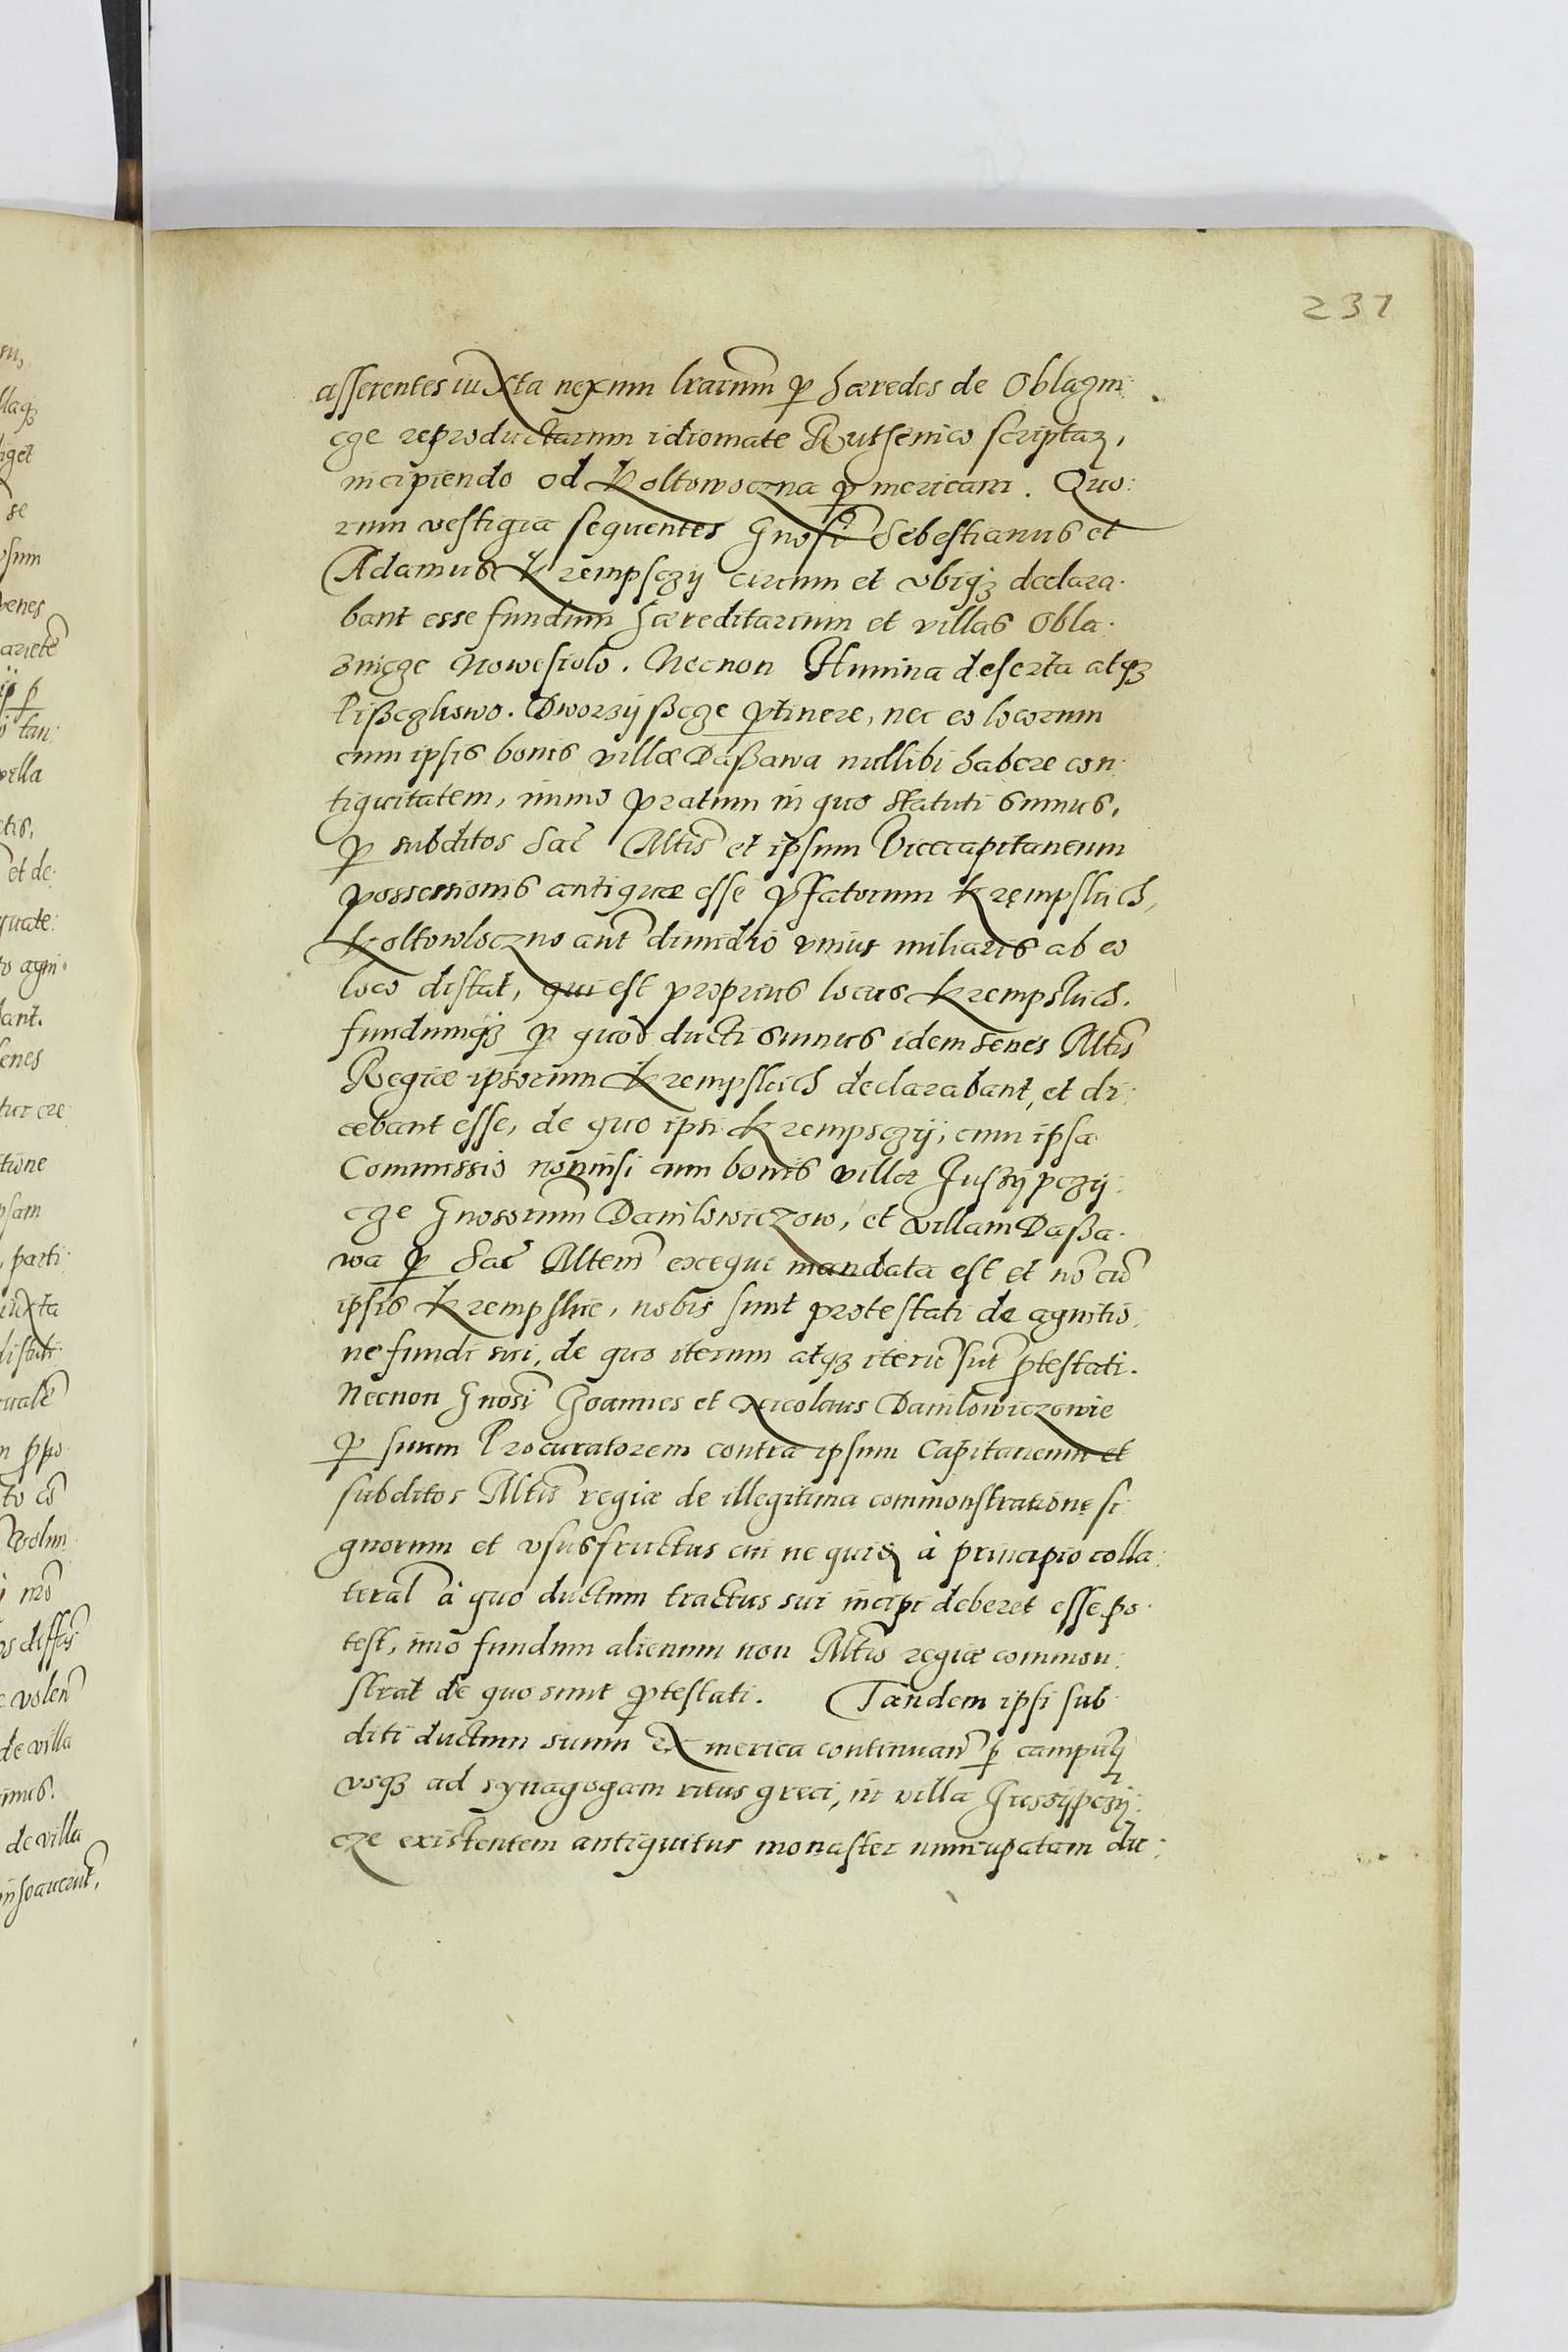 237
asserentes iuxta nexum lrarum̄ ꝑ hæredes de Oblazni:
cze reproductarum idiomate Ruthenico scriptaꝝ,
incipiendo od Koltowoczna ꝑ mericam. Quo:
rum vestigia sequentes Gnosi Sebestianus et
Adamus Krempsczy circum et vbiqꝫ declara:
bant esse fundum hæreditarium et villas Obla:
znicze Nowesiolo. Necnon Humina deserta atqꝫ
Lißczliowo. Dworzyßcze ꝑtinere, nec eo locorum
cum ipsis bonis villæ Daßawa nullibi habere con:
tiguitatem, immo pratum in quo statuti sumus,
ꝑ subditos Sac̄ Mtis et ipsum Vicecapitaneum
possessionis antiquæ esse p̄fatorum Krempskich,
Koltowloczno aut̄ dimidio vnius miliaris ab eo
loco distat, qui est proprius locus Krempskich.
fundumqꝫ ꝑ quod ducti sumus idem senes Mtis
Regiæ ipsorum Krempskich declarabant, et di:
cebant esse, de quo ipsi Krempsczy, cum ipsa
Commissio non nisi cum bonis villæ Juszypczy:
cze Gnosorum̄ Danilowiczow, et villam Daßa:
wa ꝑ Sac̄ Mtem̄ exequi mandata est et nō cū
ipsis Krempskie, nobis sunt protestati de agnitio:
ne fundi sui, de quo iterum atqꝫ iterū sūt ꝓtestati.
Necnon Gnosi Joannes et Nicolaus Danilowiczowie
ꝑ suum Procuratorem contra ipsum Capitaneum et
subditos Mtis regiæ de illegitima commonstratione si:
gnorum et vsusfructus cui ne quis à principio colla:
teral̄ à quo ductum tractus sui incipi deberet esse po:
test, imō fundum alienum non Mtis regiæ common:
strat de quo sunt ꝓtestati. Tandem ipsi sub:
diti ductum suum ex merica continuan̄ ꝑ campūqꝫ
vsqꝫ ad synagogam ritus greci, in villa Juszypczy:
cze existentem antiquitus monaster nuncupatam du: